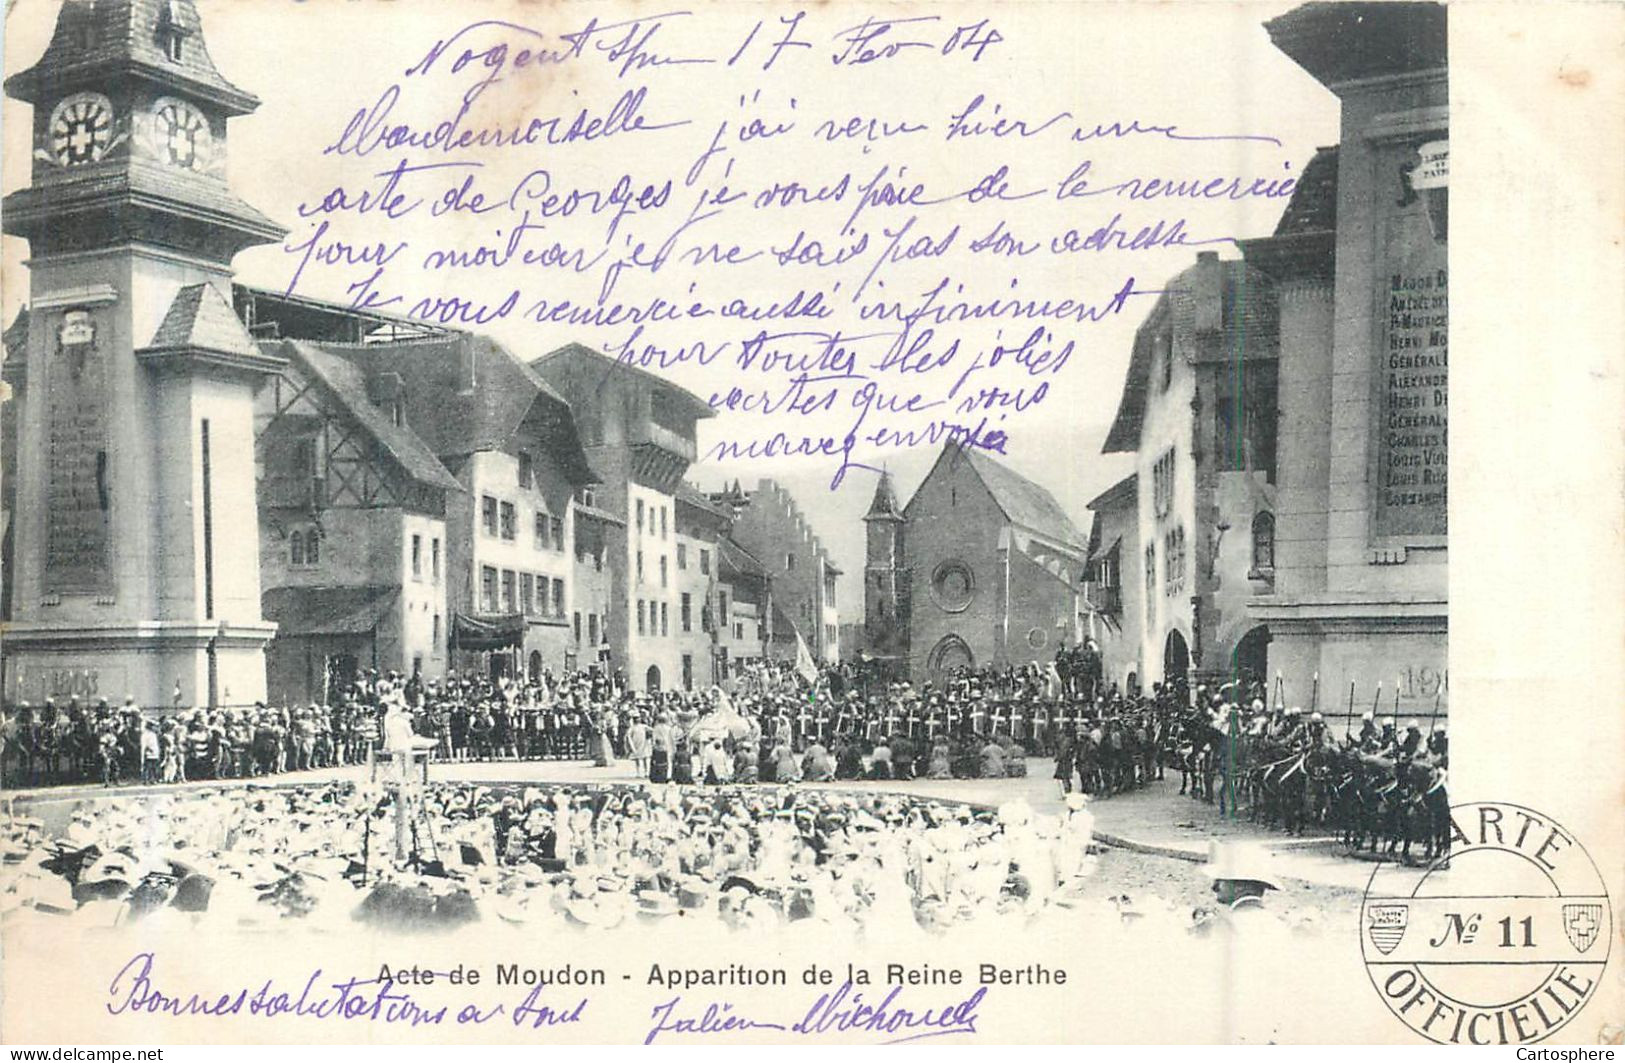 Nogent s/m 17 Fev 04
Mademoiselle j'ai reçu hier une
carte de Georges je vous prie de le remercie
pour moi car je ne sais pas son adresse
Je vous remercie aussi infiniment
pour toutes les jolies
cartes que vous
m'avez envoyée
LIBERTÉ
ET
PATRIE
MAJOR D
HENRI MO
GÉNÉRAL
ALEXAND
HENRI DE
GÉNÉRAL
CHARLES
LOUIS
LOUIS RUC
1903
19
Acte de Moudon - Apparition de la Reine Berthe
Bonnes salutations a tous Julien Michoud
CARTE
No 11
OFFICIELLE
www.delcampe.net
Cartosphere